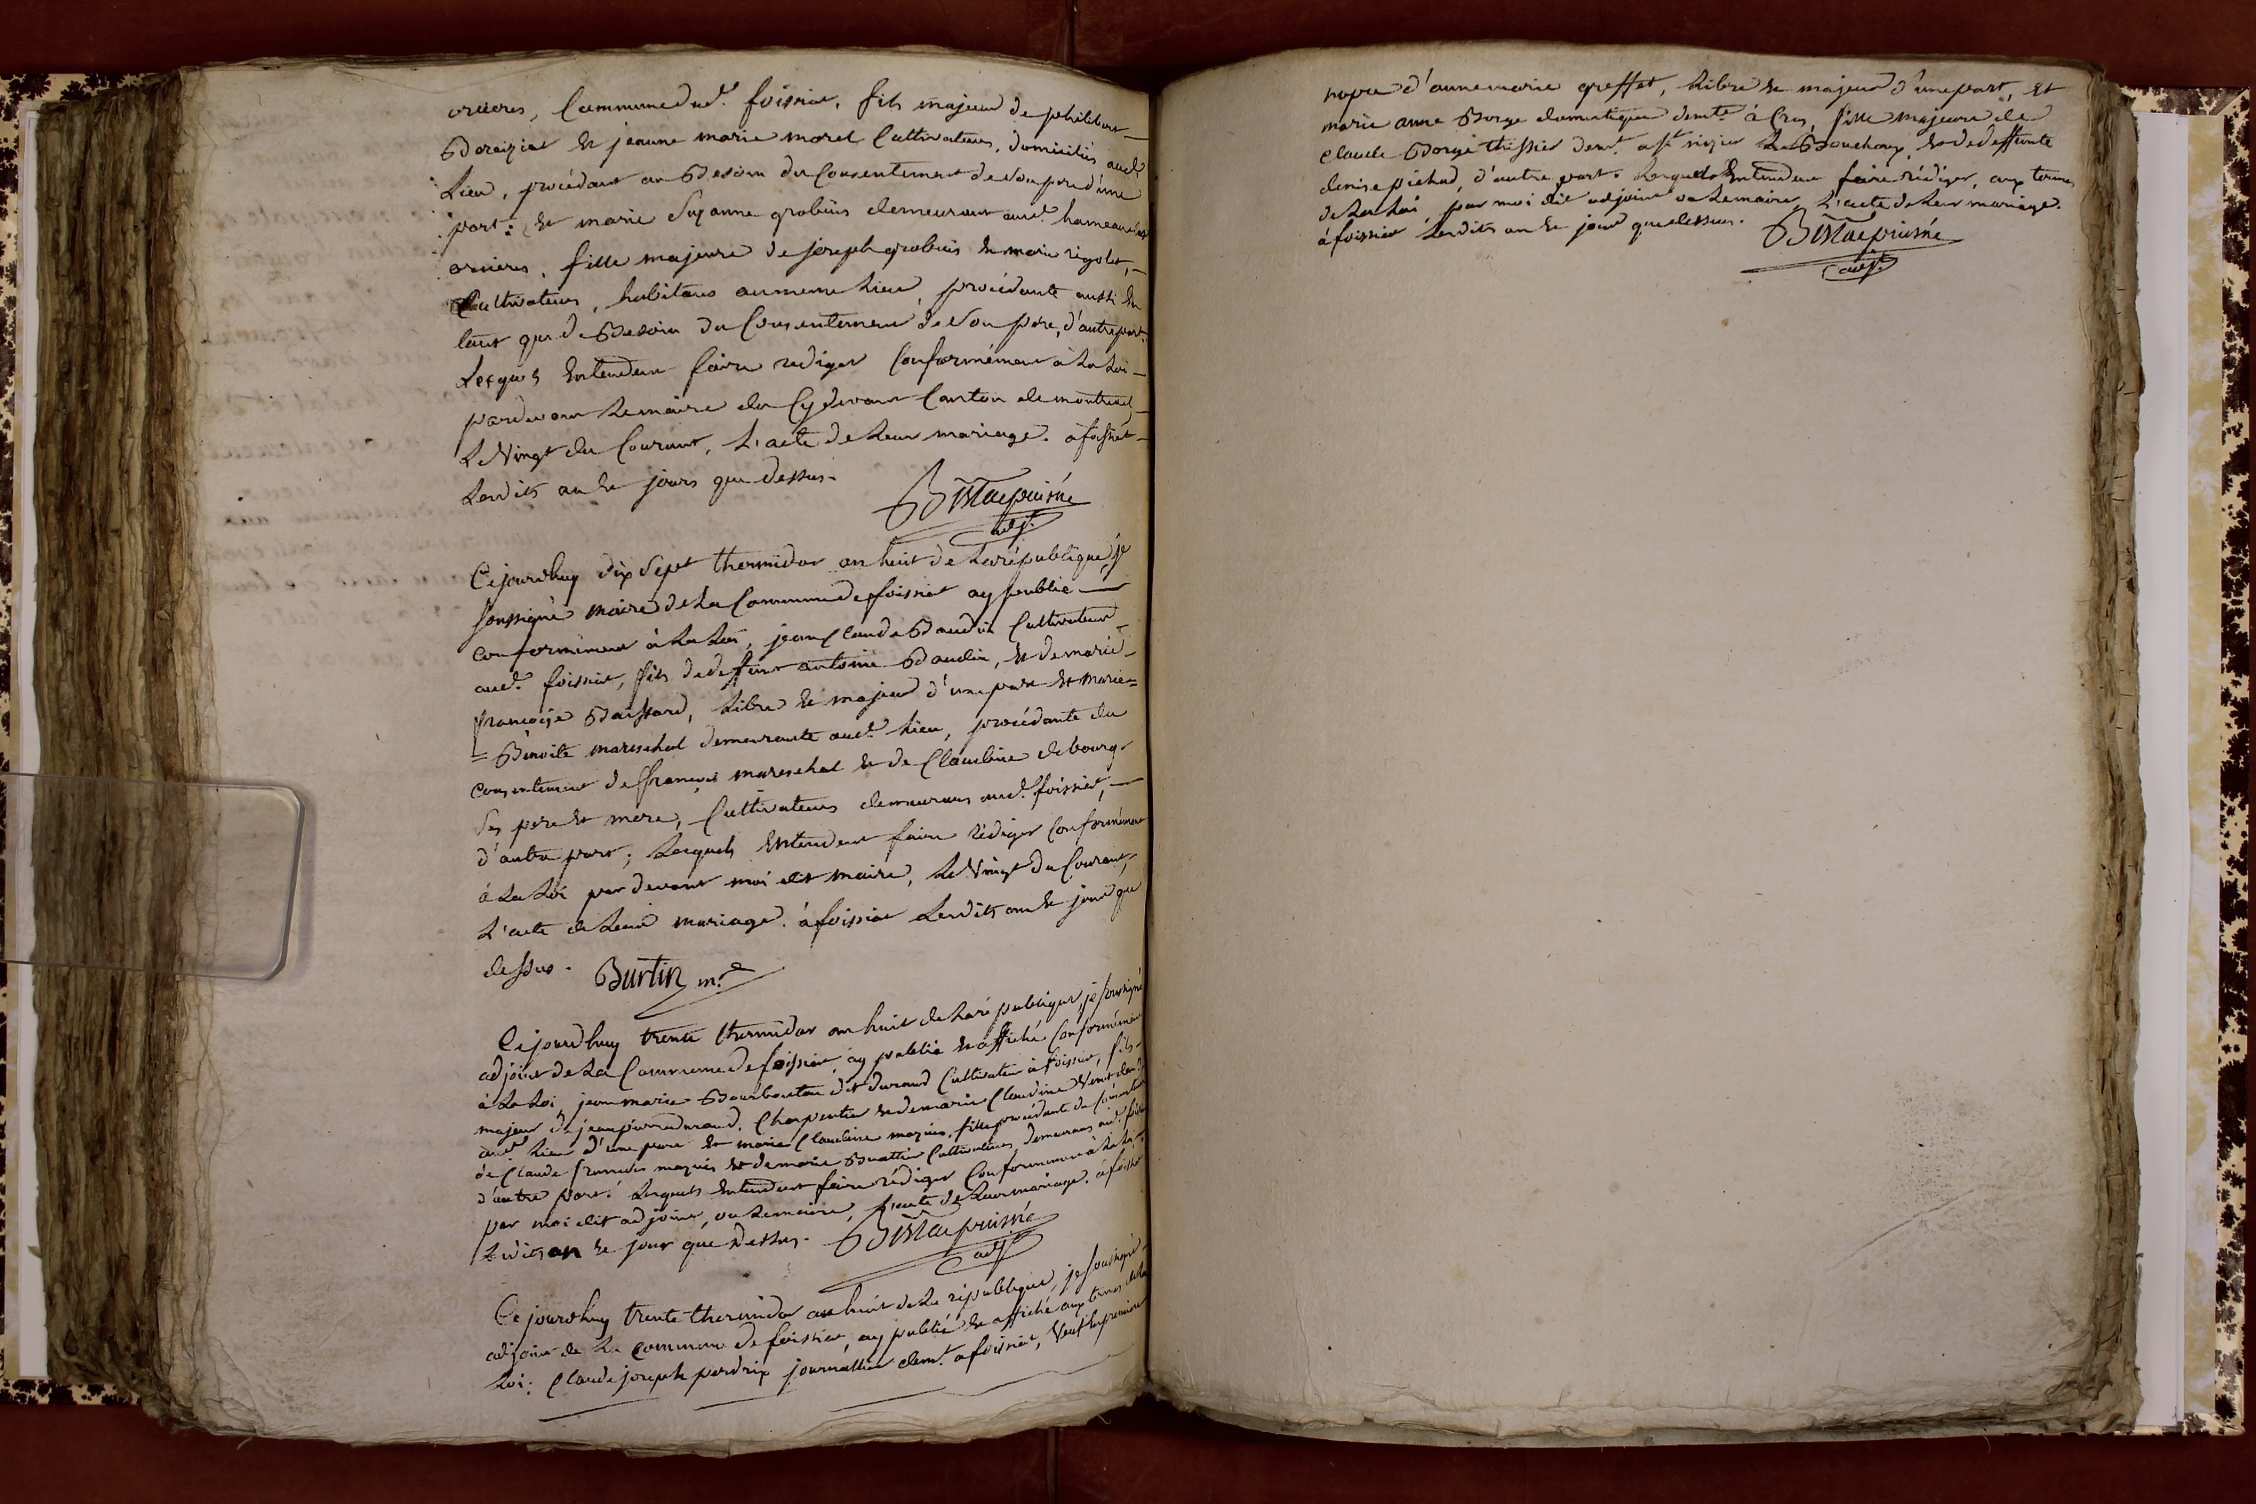 orcieres, Commune dud.t foissiat, fils majeur de philibert
Boraiziat et jeanne marie morel Cultivateurs, domiciliés aud.t
Lieu, procédant au Besoin du Consentement de son pere d'une
part; et marie Suzanne grobuis demeurant aud.t hameau des
orcieres, fille majeure de joseph grobuis et marie rigolet,
Cultivateurs, habitans au meme Lieu, procédante aussi en
tant que de Besoin du Consentement de son pere, d'autre part.
Lesquels Entendent faire rediger Conformément à La Loi
pardevant Le maire du Cydevant Canton de montrevel,
Le Vingt du Courant, L'acte de Leur mariage. à foissiat
Lesdits an et jours que dessus.
puisné
adj.t
Cejourdhuy dix Sept thermidor an huit de La république, je
Soussigné maire de La Commune de foissiat ay publié
conformément à La Loi, jean Claude Baudin Cultivateur
aud.t foissiat, fils de deffunt antoine Baudin, et de marie
françoise Baissard, Libre et majeur d'une part et marie=
=Benoite mareschal demeurante aud.t Lieu, procédante du
consentement de françois mareschal et de Claudine debourg
ses pere et mere, Cultivateurs demeurans aud.t foissiat,
d'autre part; Lesquels Entendent faire rédiger Conformément
à La Loi par devant moi dit maire, Le Vingt du Courant,
L'acte de Leur mariage. à foissiat Lesdits an et jour que
dessus. Burtin m.e
Cejourdhuy trente thermidor an huit de La république, je soussigné
adjoint de La Commune de foissiat, ay publié et affiché Conformément
à La Loi, jean marie Bourbouton dit durand Cultivateur à foissiat, fils
majeur de jean pierre durand, Charpentier et de marie Claudine
aud.t Lieu d'une part et marie Claudine mazuis, fille procédante du
de Claude francois mazuis et de marie Buattin Cultivateurs, demeurans aud.t
d'autre part. Lesquels Entendent faire rédiger Conformément à La Loi
par moi dit adjoint, ou Le maire, L'acte de Leur mariage. à foissiat
Lesdits an et jour que dessus. puisné
adj.t
Cejourdhuy trente thermidor an huit de La république, je soussigné
adjoint de La Commune de foissiat, ay publié et affiché aux termes de La
Loi; Claude joseph perdrix journallier dem.t a foissiat, Veuf en premiere
nopce d'anne marie greffet, Libre et majeur d'une part, et
marie anne Borge domestique demte à Cras, fille majeure de
Claude Borge thissier dem.t a St nizier Le Bouchoux, et de deffunte
denise pichud, d'autre part. Lesquels Entendent faire rédiger, aux termes
de La Loi, par moi dit adjoint ou Le maire, L'acte de Leur mariage.
à foissiat Lesdits an et jour que dessus.
puisné
adj.t